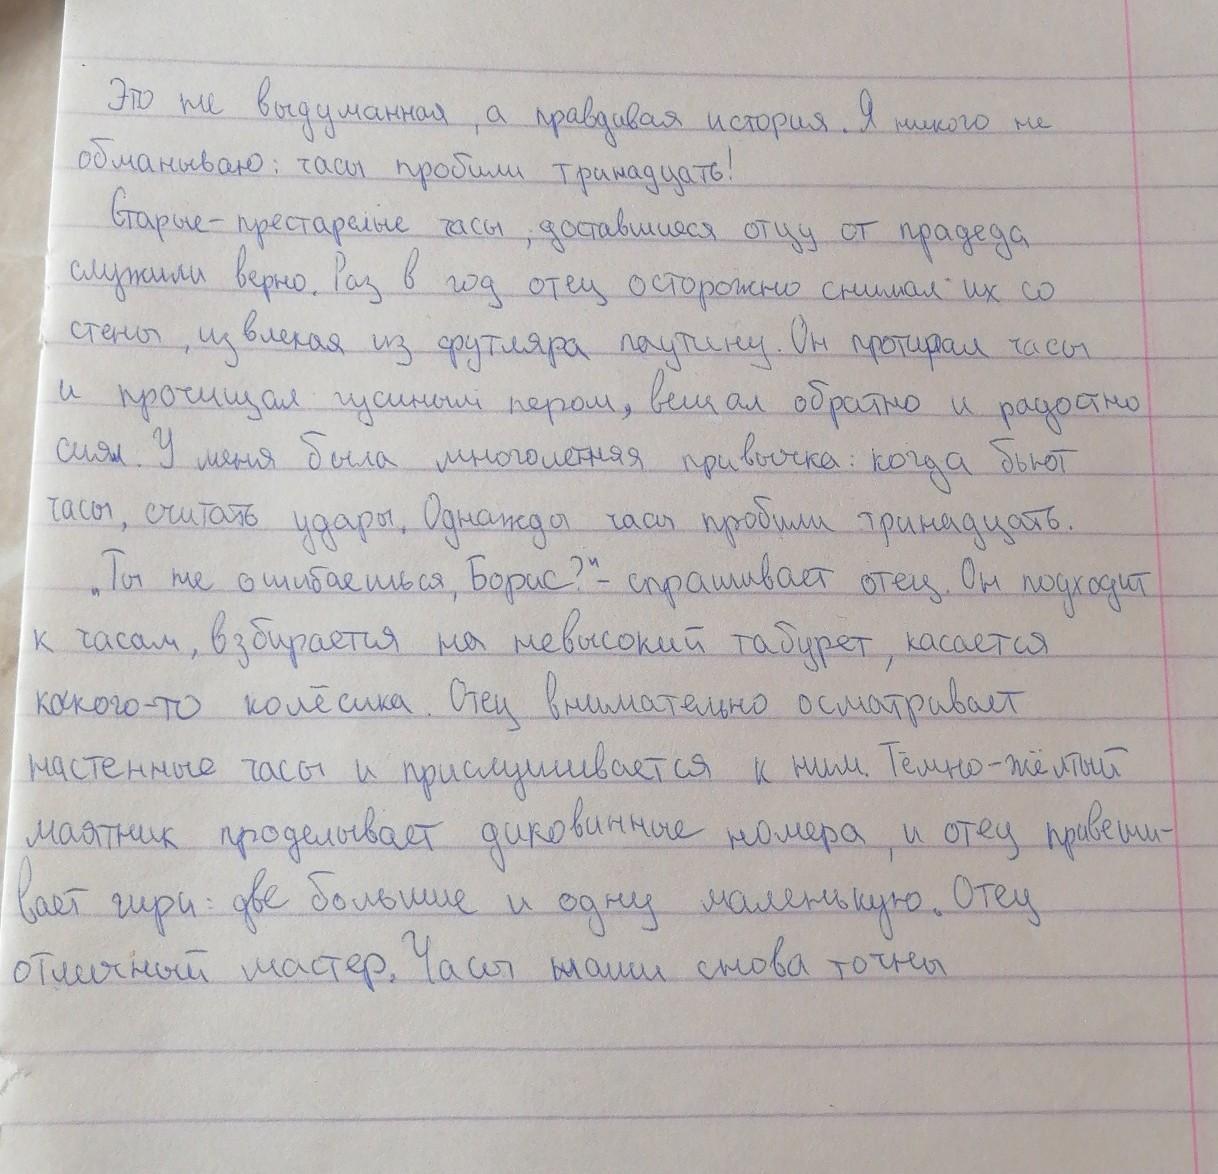 Это не выдуманная, а правдивая история. Я никого не
обманываю: часы пробили тринадцать!
Старые-престарелые часы, доставшиеся отцу от прадеда
служили верно. Раз в год отец осторожно снимал их со
стены, извлекая из футляра паутину. Он протирал часы
и прочищал гусиным пером, вешал обратно и радостно
сиял. У меня была многолетняя привычка: когда бьют
часы, считать удары. Однажды часы пробили тринадцать.
„Ты не ошибаешься, Борис?“ - спрашивает отец. Он подходит
к часам, взбирается на невысокий табурет, касается
какого-то колёсика. Отец внимательно осматривает
настенные часы и прислушивается к ним. Тёмно-жёлтый
маятник проделывает диковинные номера, и отец привеши-
вает гири: две большие и одну маленькую. Отец
отличный мастер. Часы пошли снова точны